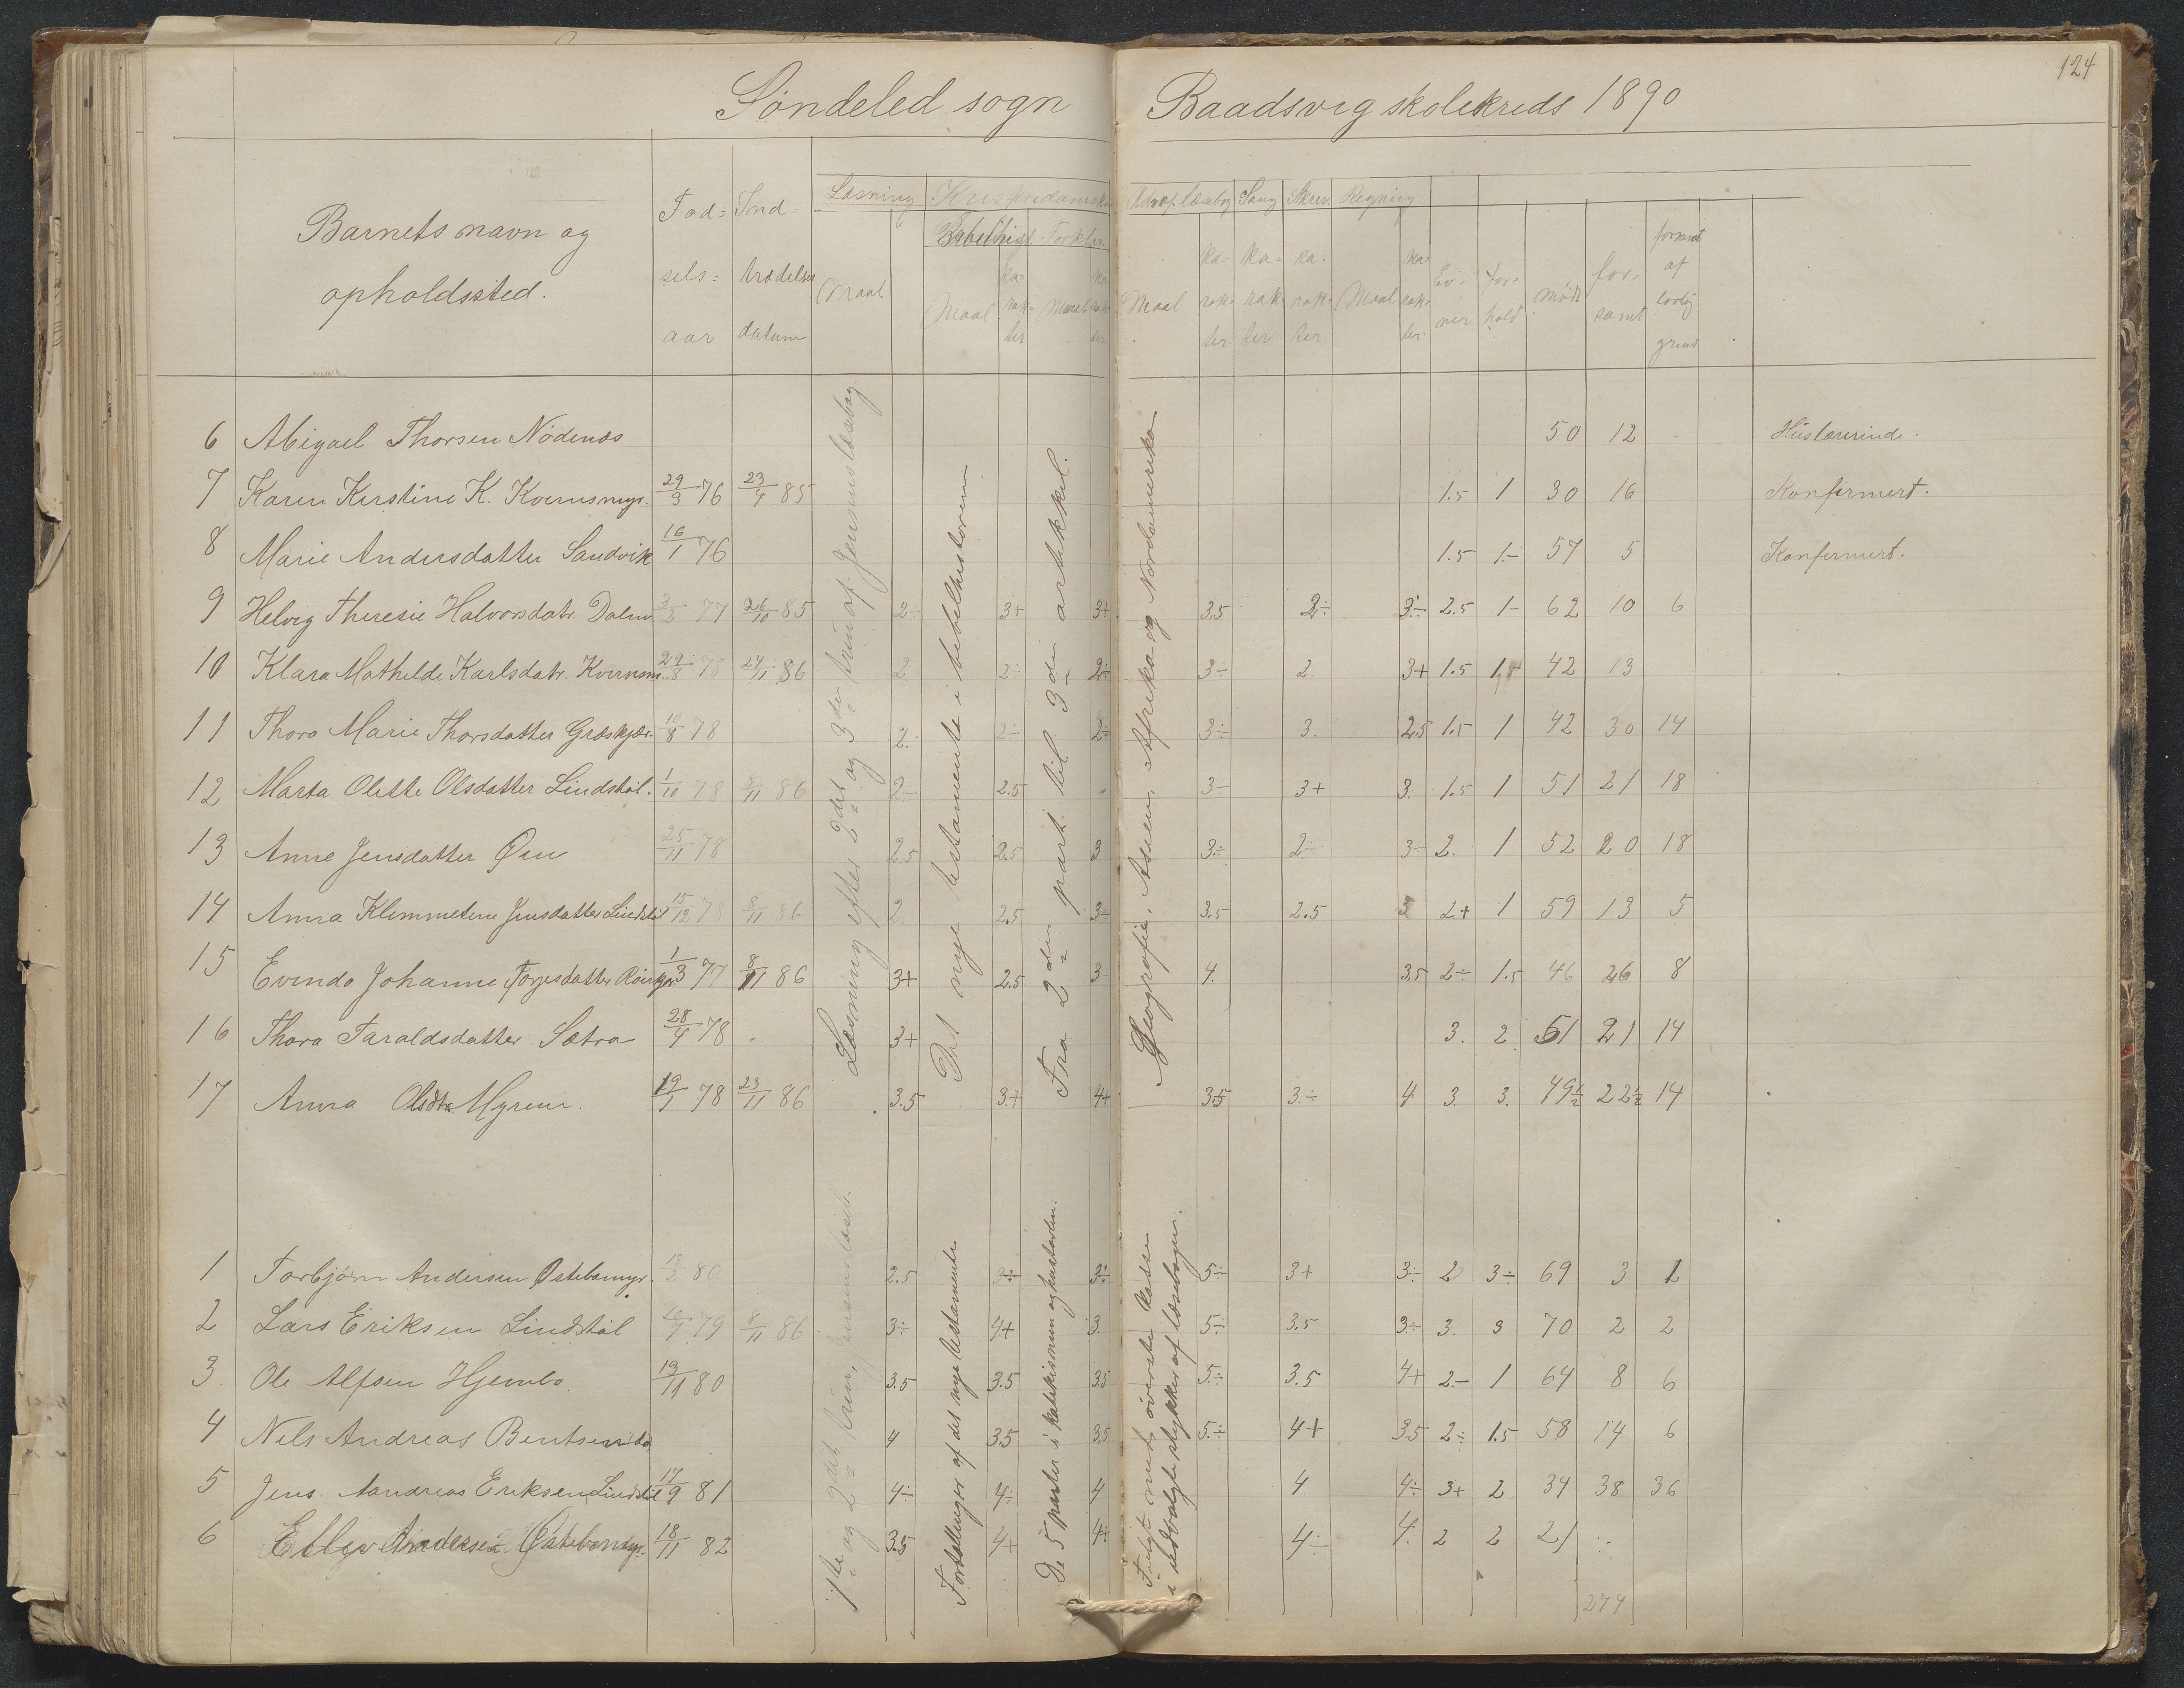 124
Søndeled sogn Baadsvig skolekreds 1890
Barnets navn og opholdssted.
Fød= sels= aar
Ind= trædelses datum
Læsning
Maal
Kristendomsku
Bibelhist.
Maal
ka= rak= ter
Forklar.
Maal
ka= rak= ter
Udvop læsbog
Maal
ka= rak= ter.
Sang
ka= rak ter
Skriv.
ka= rak= ter.
Regning
Maal
ka= rak= ter.
Ev= ner
for= hold
mødt
for= sømt
forsømt af lovlig grund
6 Abigael Thorsen Nødenæs 50 12 Huslærerinde.
7 Karen Kirstine K. Kvernsmyr. 29/3 76 23/4 85 1.5 1 30 16 Konfirmert.
8 Marie Andersdatter Sandvik 16/1 76 1.5 1- 57 5 Konfirmert.
9 Helvig Theresie Halvorsdatr. Dalen 2/2 77 26/10 85 2÷ 3+ 3+ 3.5 2÷ 3÷ 2.5 1- 62 10 6
10 Klara Mathilde Karlsdatr. Kvernsm. 29/8 78 24/11 86 2 2÷ 2÷ 3÷ 2 3+ 1.5 1,5 42 13
11 Thora Marie Thorsdatter Græskjær. 10/8 78 2. 2÷ 2÷ 3÷ 3. 2.5 1.5 1 42 30 14
12 Marta Olette Olsdatter Lindstøl. 1/10 78 8/11 86 2÷ 2.5 3÷ 3+ 3. 1.5 1 51 21 18
13 Anne Jensdatter Øen 25/11 78 2.5 2.5 3 3÷ 2÷ 3÷ 2. 1 52 20 18
14 Anna Klemmetine Jensdatter Lindstøl 15/12 78 8/11 86 2. 2.5 3÷ 3.5 2.5 3 2+ 1 59 13 5
15 Evinda Johanne Torjesdatter 1/3 77 8/11 86 3+ 2.5 3 4. 3.5 2÷ 1.5 46 26 8
16 Thora Taraldsdatter Sætra 28/4 78 3+ 3. 2 51 21 14
17 Anna Olsdtr Myren. 19/7 78 23/11 86 3.5 3+ 4+ 3.5 3.÷ 4 3. 3. 49½ 22½ 14
Læsning efter 2det og 3die trin af Jensens læsebog.
Det nye testamente i bibelhistorien
Fra 2den part til 3die artikkel.
Geografie. Asien, Afrika og Nordamerika
1 Torbjørn Andersen Østebømyr. 13/2 80 2.5 3÷ 3÷ 5÷ 3+ 3÷ 2 3÷ 69 3 1
2 Lars Eriksen Lindstøl 10/7 79 8/11 86 3÷ 4+ 3. 5÷ 3.5 3÷ 3. 3 70 2 2
3. Ole Alfsen Hjembo 19/11 80 3.5 3.5 3.5 5.÷ 3.5 4+ 2.- 1 64 8 6
4 Nels Andreas Bentsen 4 3.5 3.5 5.÷ 4+ 3.5 2÷ 1.5 58 14 6
5 Jens Aandreas Eriksen Lindstøl 17/9 81 4÷ 4÷ 4 4 4÷ 3+ 2 34 38 36
6 Ellev Andersen Østebømyr. 18/11 82 3.5 4+ 4+ 4÷ 4. 2 2 21
1ste og 2det trin, Jensens læseb.
Fortællinger af det nye testamente
De 5 parter i katekismen og hustavlen.
Fulgt med øverste klasse
i udvalgte stykker af læsebogen.
274